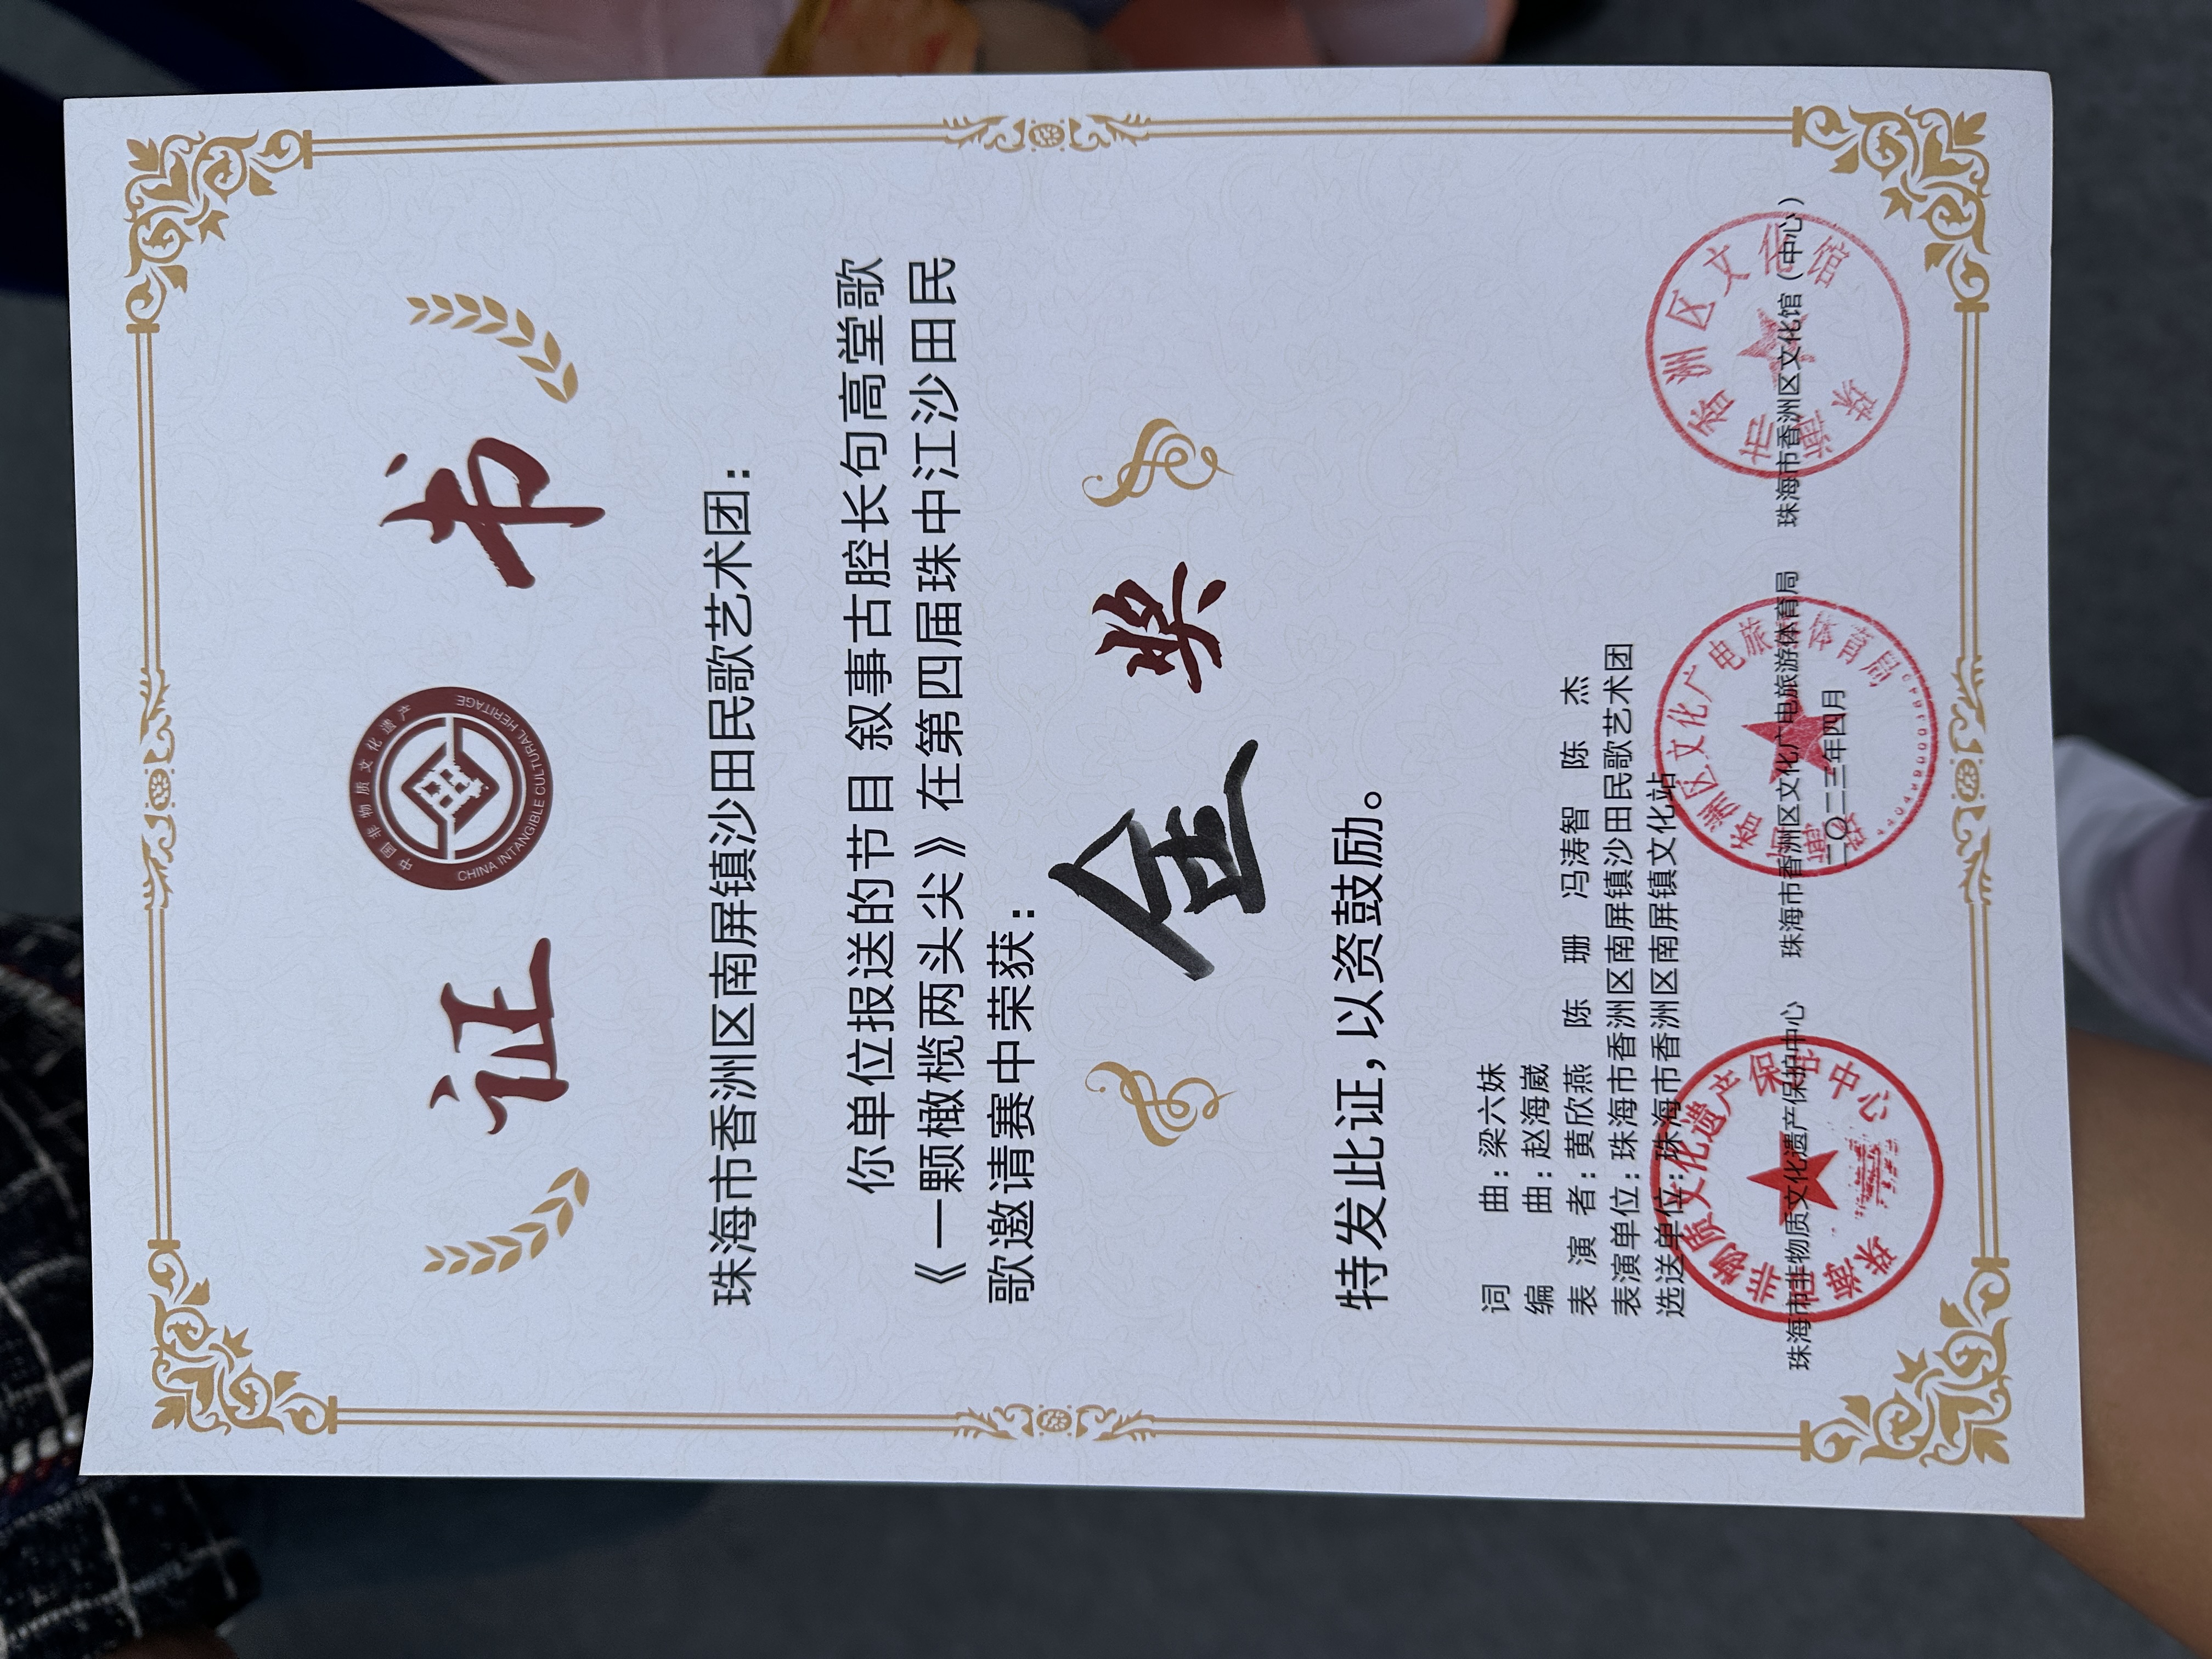 证 书
中国非物质文化遗产
CHINA INTANGIBLE CULTURAL HERITAGE
珠海市香洲区南屏镇沙田民歌艺术团：
你单位报送的节目 叙事古腔长句高堂歌
《一颗橄榄两头尖》在第四届珠中江沙田民
歌邀请赛中荣获：
金 奖
特发此证，以资鼓励。
词 曲：梁六妹
编 曲：赵海崴
表 演 者：黄欣燕 陈 珊 冯涛智 陈 杰
表演单位：珠海市香洲区南屏镇沙田民歌艺术团
选送单位：珠海市香洲区南屏镇文化站
珠海市非物质文化遗产保护中心 珠海市香洲区文化广电旅游体育局 珠海市香洲区文化馆（中心）
二〇二三年四月
珠海市非物质文化遗产保护中心
珠海市香洲区文化广电旅游体育局
珠海市香洲区文化馆